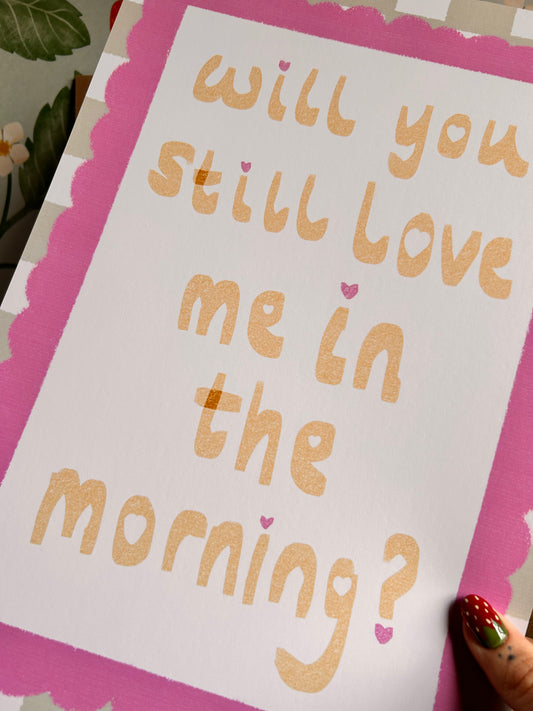 will you
still love
me in
the
morning?